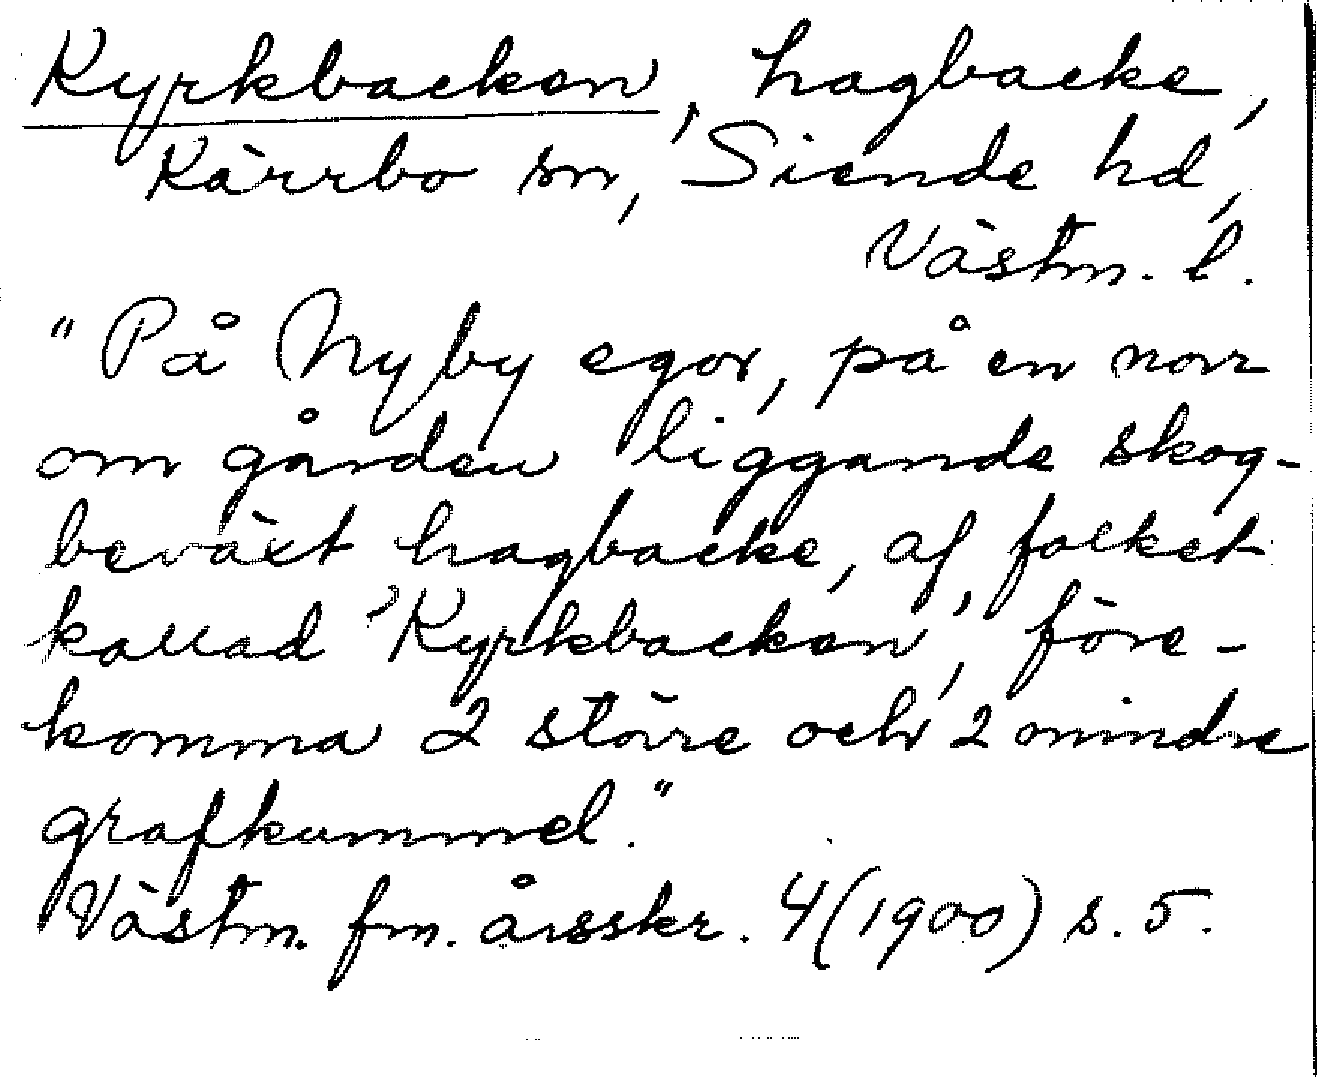 Kyrkbacken, hagbacke,
Kärrbo sn, Siende hd,
Västm. l.
"På Nyby egor, på en norr
om gården liggande skog-
beväxt hagbacke, af folket
kallad 'Kyrkbacken', före-
komma 2 större och 2 mindre
grafkummel."
Västm. fm. årsskr. 4 (1900) s. 5.